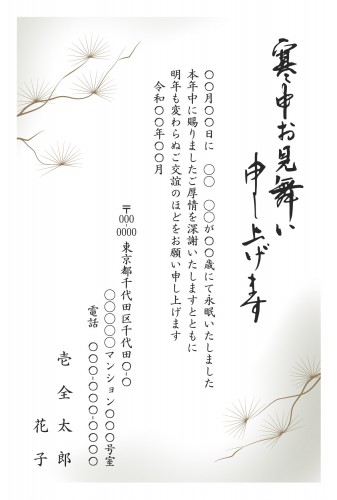 寒中お見舞い
申し上げます
〇〇月〇〇日に　〇〇　〇〇が〇〇歳にて永眠いたしました
本年中に賜りましたご厚情を深謝いたしますとともに
明年も変わらぬご交誼のほどをお願い申し上げます
令和〇〇年〇〇月
〒000-0000 東京都千代田区千代田〇-〇
〇〇〇〇〇マンション〇〇〇号室
電話　〇〇〇-〇〇〇-〇〇〇〇
壱全太郎
花子